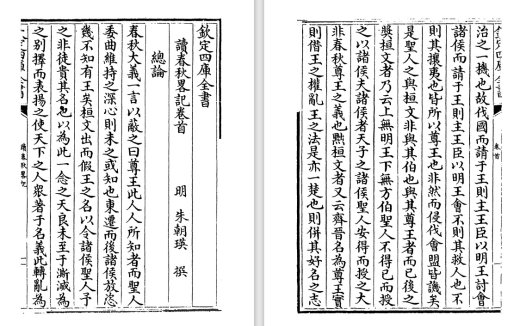 欽定四庫全書
讀春秋畧記卷首
明 朱朝瑛 撰
總論
春秋大義一言以蔽之曰尊王此人人所知者而聖人
委曲維持之深心則未之或知也東遷而後諸侯放恣
幾不知有王矣桓文出而假王之名以令諸侯聖人予
之非徒貴其名也以為此一念之天良未至于澌滅為
之別擇而表揚之使天下之人衆著于名義此轉亂為
讀春秋畧記
卷首
治之一機也故伐國而請于王則主王臣以明王討會
諸侯而請于王則主王臣以明王會不則其救人也不
則其攘夷也皆所以尊王也非然而侵伐會盟皆譏矣
是聖人之與桓文非與其伯也與其尊王者而已後之
獎桓文者乃云上無明王下無方伯聖人不得已而授
之以諸侯夫諸侯者天子之諸侯聖人安得而授之大
非春秋尊王之義也黜桓文者又云齊晉名為尊王實
則借王之權亂王之法是亦一楚也則併其好名之志